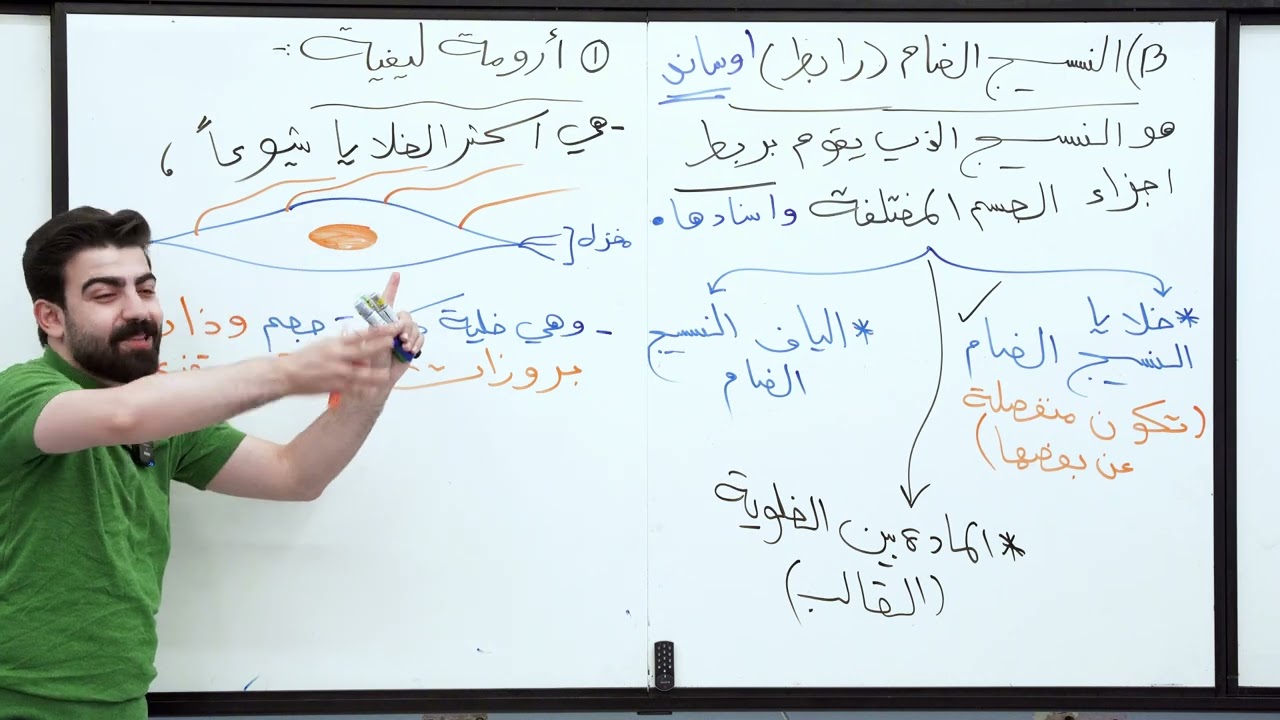 B) النسيج الضام (رابط) اوساند
هو النسيج الذي يقوم بربط
اجزاء الجسم المختلفة واسنادها.
*خلايا
النسيج الضام
(تكون منفصلة
عن بعضها)
*الياف النسيج
الضام
*المادة بين الخلوية
(القالب)
① أرومة ليفية :-
-هي اكثر الخلايا شيوعاً ،
مغزل
- وهي خلية حجم وذات
بروزات